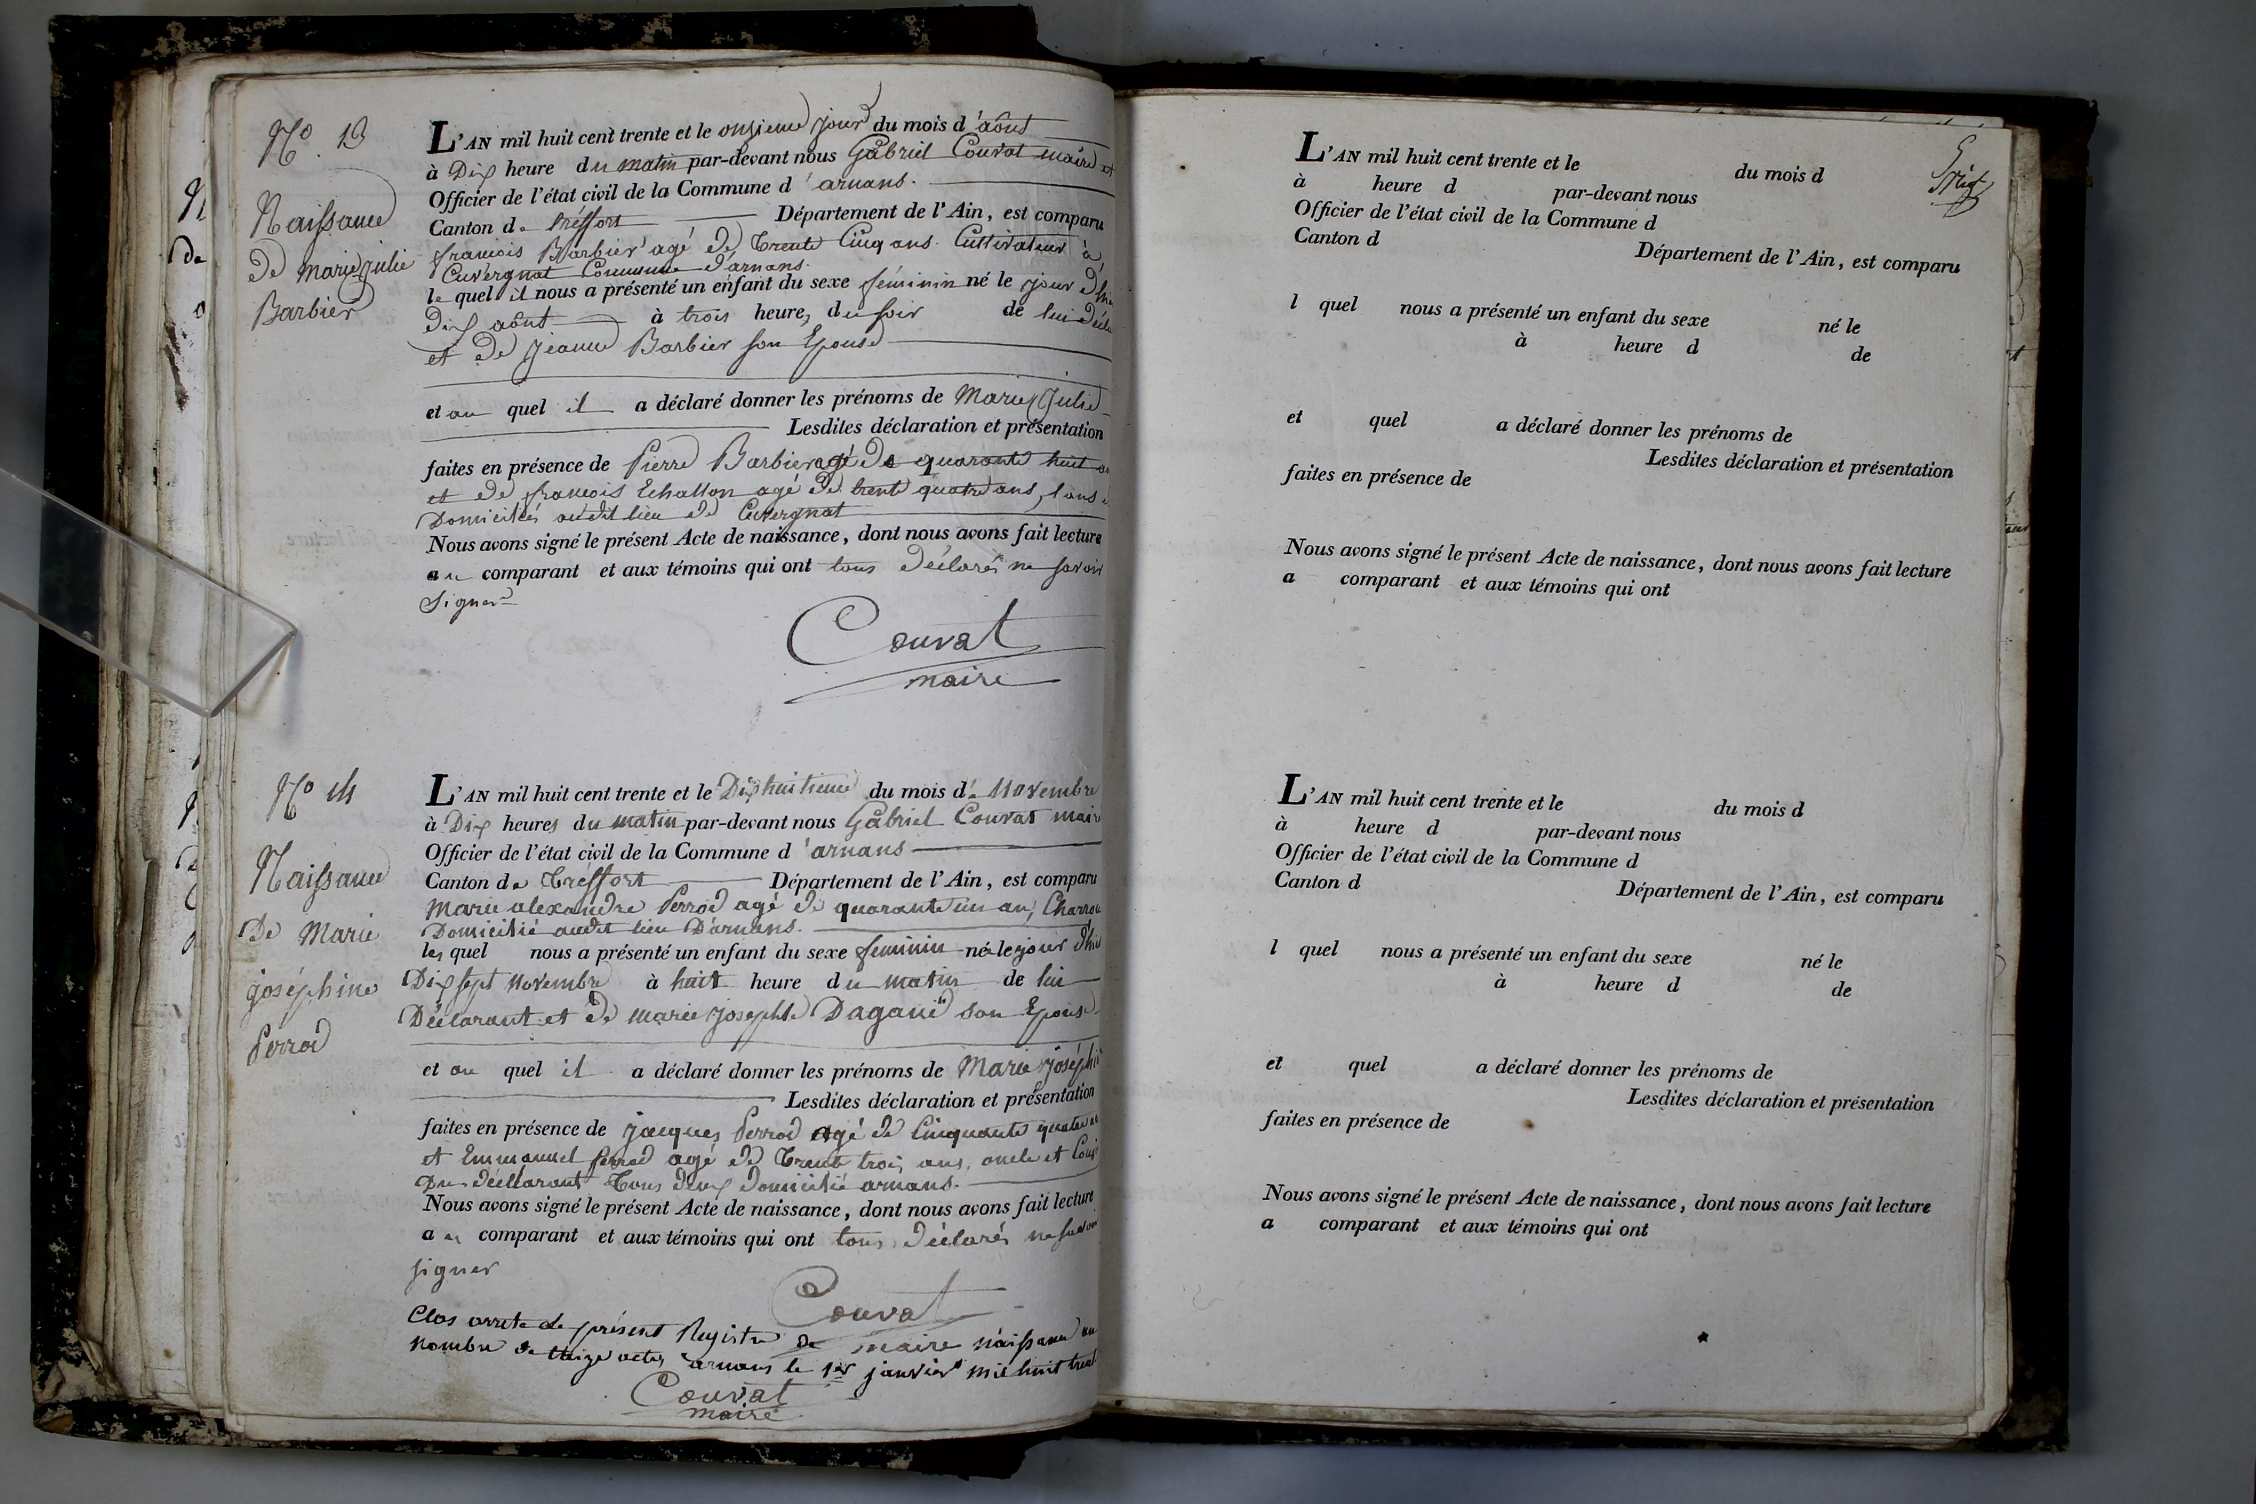 No. 13
Naissance
de marie julie
Barbier
L'AN mil huit cent trente et le onzieme jour du mois d'août
à Dix heure du matin par-devant nous Gabriel Couvat maire et
Officier de l'état civil de la Commune d'arnans.
Canton de tréffort Département de l'Ain, est comparu
francois Barbier agé de trente Cinq ans. Cultivateur à
Cuvergnat Commune d'arnans.
le quel il nous a présenté un enfant du sexe féminin né le jour d'hier
Dix août à trois heures du soir de lui décla
et de jeanne Barbier son Epouse
et au quel il a déclaré donner les prénoms de Marie Julie
Lesdites déclaration et présentation
faites en présence de Pierre Barbier agé de quarante huit an
et de francois Echallon agé de trente quatre ans, tous
Domiciliés audit lieu de Cuvergnat
Nous avons signé le présent Acte de naissance, dont nous avons fait lecture
au comparant et aux témoins qui ont tous déclarés ne savoir
signer
Couvat
maire
No 14
Naissance
De Marie
joséphine
Perrod
L'AN mil huit cent trente et le Dixhuitieme du mois de Novembre
à Dix heures du matin par-devant nous Gabriel Couvat maire
Officier de l'état civil de la Commune d'arnans
Canton de tréffort Département de l'Ain, est comparu
Marie alexandre Perrod agé de quarante un an, Charron
Domicilié audit lieu D'arnans.
les quel nous a présenté un enfant du sexe feminin née le jour d'hie
Dixsept Novembre à huit heure du matin de lui
Déclarant et de marie josephte Daganié son Epouse
et au quel il a déclaré donner les prénoms de Marie joséphi
Lesdites déclaration et présentation
faites en présence de jacques Perrod Agé de Cinquante quatre an
et Emmanuel Perrod agé de trente trois ans, oncle et Cousi
Du décllarant tous deux domicilié arnans.
Nous avons signé le présent Acte de naissance, dont nous avons fait lecture
au comparant et aux témoins qui ont tous déclarés ne savoir
signer
Couvat
maire
Clos arrete le présent Registre de naissance au
nombre de treize actes arnans le 1er janvier mil huit trent
Couvat
maire
L'AN mil huit cent trente et le du mois d
à heure d par-devant nous
Officier de l'état civil de la Commune d
Canton d Département de l'Ain, est comparu
l quel nous a présenté un enfant du sexe né le
à heure d de
et quel a déclaré donner les prénoms de
Lesdites déclaration et présentation
faites en présence de
Nous avons signé le présent Acte de naissance, dont nous avons fait lecture
a comparant et aux témoins qui ont
L'AN mil huit cent trente et le du mois d
à heure d par-devant nous
Officier de l'état civil de la Commune d
Canton d Département de l'Ain, est comparu
l quel nous a présenté un enfant du sexe né le
à heure d de
et quel a déclaré donner les prénoms de
Lesdites déclaration et présentation
faites en présence de
Nous avons signé le présent Acte de naissance, dont nous avons fait lecture
a comparant et aux témoins qui ont